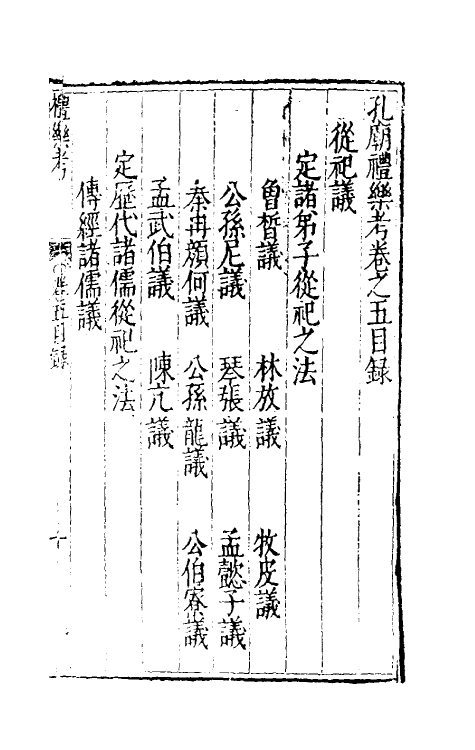 孔廟禮樂考卷之五目録
從祀議
定諸弟子從祀之法
魯晳議 林放議 牧皮議
公孫尼議 琴張議 孟懿子議
奉冉顏何議 公孫龍議 公伯寮議
孟武伯議 陳亢議
定歷代諸儒從祀之法
傳經諸儒議
禮樂考 卷五目録